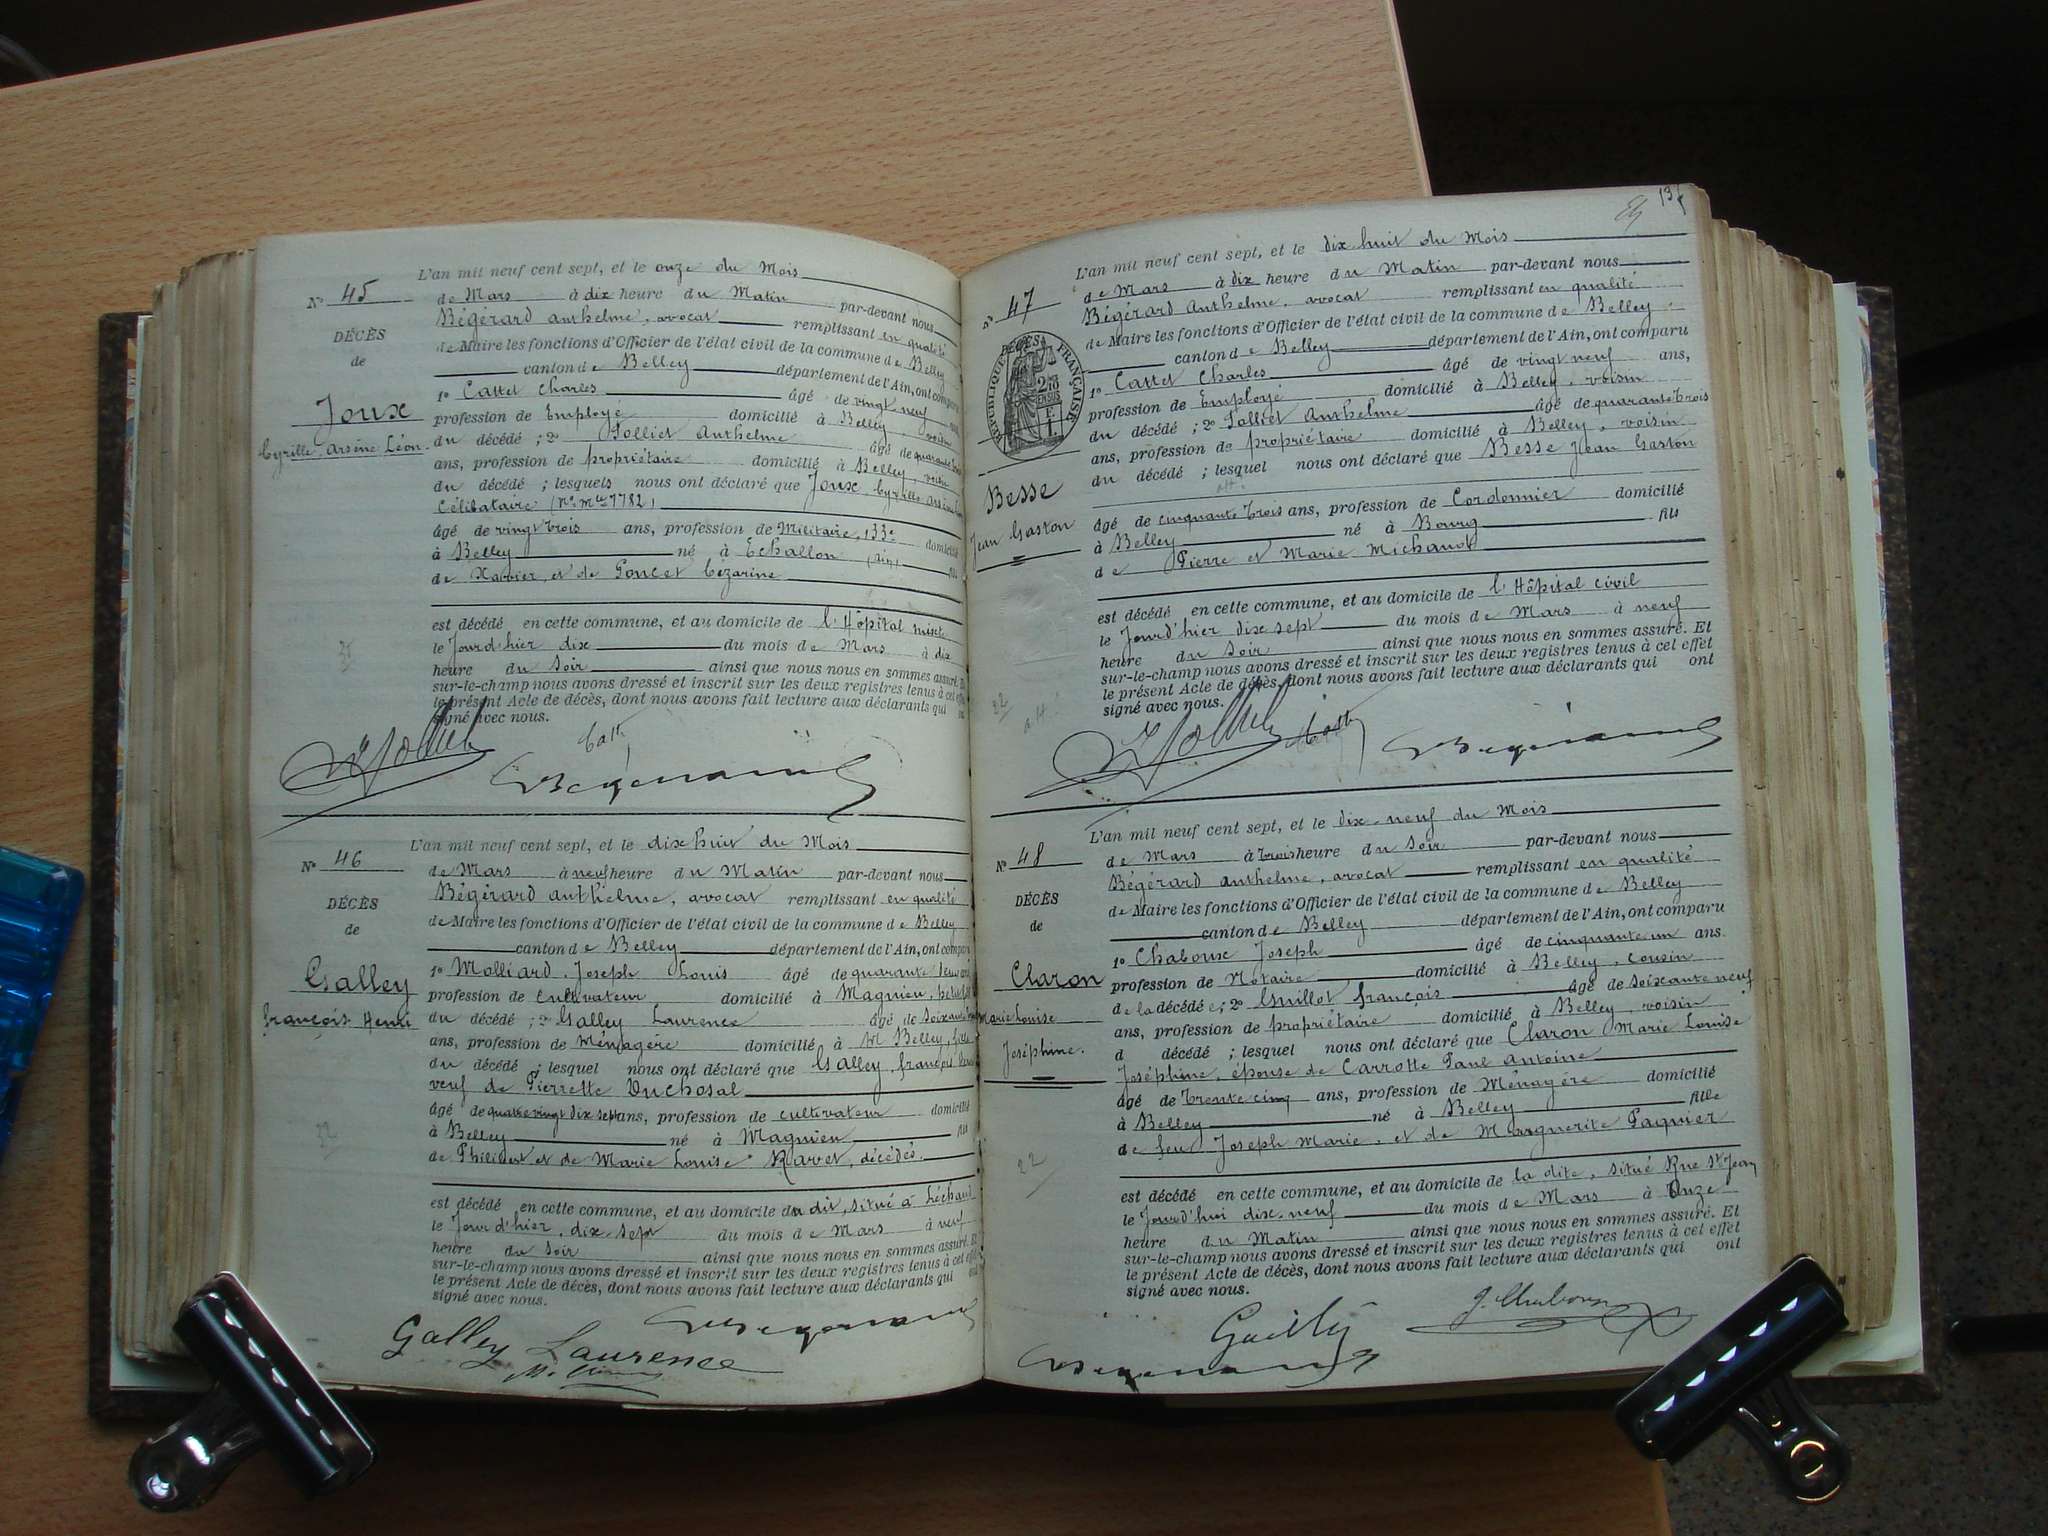 L'an mil neuf cent sept, et le onze du Mois
N° 45
de Mars à dix heure du Matin par-devant nous
Bégérard Anthelme, avocat remplissant en qualité
DÉCÈS
de Maire les fonctions d'Officier de l'état civil de la commune de Belley
de
canton de Belley département de l'Ain, ont comparu
1° Cattet Charles âgé de vingt neuf
Joux
profession de Employé domicilié à Belley, voisin
Cyrille Arsène Léon
du décédé ; 2° Jolliet Anthelme âgé de quarante trois
ans, profession de propriétaire domicilié à Belley, voisin
du décédé ; lesquels nous ont déclaré que Joux Cyrille Arsène Léon
Célibataire (N° Mle 7782)
âgé de vingt trois ans, profession de Militaire, 133e domicilié
à Belley né à Échallon (Ain) fils
de Xavier, et de Poncet Cézarine
est décédé en cette commune, et au domicile de l'Hôpital mixte
le Jourd'hier dix du mois de Mars à dix
heure du Soir ainsi que nous nous en sommes assuré. Et
sur-le-champ nous avons dressé et inscrit sur les deux registres tenus à cet effet
le présent Acte de décès, dont nous avons fait lecture aux déclarants qui ont
signé avec nous.
L'an mil neuf cent sept, et le dix huit du Mois
N° 46
de Mars à neuf heure du Matin par-devant nous
Bégérard Anthelme, avocat remplissant en qualité
DÉCÈS
de Maire les fonctions d'Officier de l'état civil de la commune de Belley
de
canton de Belley département de l'Ain, ont comparu
1° Molliard Joseph Louis âgé de quarante
Galley
profession de cultivateur domicilié à Magnieu,
François Henri
du décédé ; 2° Galley Laurence âgé de soixante
ans, profession de Ménagère domicilié à Belley, fille
du décédé ; lesquel nous ont déclaré que Galley, François Henri
veuf de Pierrette Duchosal
âgé de quatre vingt dix sept ans, profession de cultivateur domicilié
à Belley né à Magnieu fils
de Philibert et de Marie Louise Ravet, décédés.
est décédé en cette commune, et au domicile du dit, situé à
le Jourd'hier, dix sept du mois de Mars à neuf
heure du Soir ainsi que nous nous en sommes assuré. Et
sur-le-champ nous avons dressé et inscrit sur les deux registres tenus à cet effet
le présent Acte de décès, dont nous avons fait lecture aux déclarants qui ont
signé avec nous.
Galley Laurence
L'an mil neuf cent sept, et le dix huit du Mois
N° 47
de Mars à dix heure du Matin par-devant nous
Bégérard Anthelme, avocat remplissant en qualité
DÉCÈS
RÉPUBLIQUE FRANÇAISE
de Maire les fonctions d'Officier de l'état civil de la commune de Belley
canton de Belley département de l'Ain, ont comparu
1° Cattet Charles âgé de vingt neuf ans,
profession de Employé domicilié à Belley, voisin
du décédé ; 2° Jolliet Anthelme âgé de quarante trois
ans, profession de propriétaire domicilié à Belley, voisin
du décédé ; lesquel nous ont déclaré que Besse Jean Gaston
Besse
Jean Gaston
âgé de cinquante trois ans, profession de Cordonnier domicilié
à Belley né à Bourg fils
de Pierre et Marie Michaud
est décédé en cette commune, et au domicile de l'Hôpital civil
le Jourd'hier dix sept du mois de Mars à neuf
heure du Soir ainsi que nous nous en sommes assuré. Et
sur-le-champ nous avons dressé et inscrit sur les deux registres tenus à cet effet
le présent Acte de décès, dont nous avons fait lecture aux déclarants qui ont
signé avec nous.
L'an mil neuf cent sept, et le dix-neuf du Mois
N° 48
de Mars à trois heure du Soir par-devant nous
Bégérard Anthelme, avocat remplissant en qualité
DÉCÈS
de Maire les fonctions d'Officier de l'état civil de la commune de Belley
de
canton de Belley département de l'Ain, ont comparu
1° Chaboux Joseph âgé de cinquante un ans
Claron
profession de Notaire domicilié à Belley, cousin
Marie Louise
de la décédée ; 2° Guillot François âgé de soixante neuf
Joséphine.
ans, profession de propriétaire domicilié à Belley, voisin
d décédé ; lesquel nous ont déclaré que Claron Marie Louise
Joséphine, épouse de Carrotte Paul Antoine
âgé de trente cinq ans, profession de Ménagère domicilié
à Belley né à Belley fille
de feu Joseph Marie, et de Marguerite Paquier
est décédé en cette commune, et au domicile de la dite, situé Rue St Jean
le Jourd'hui dix-neuf du mois de Mars à Onze
heure du Matin ainsi que nous nous en sommes assuré. Et
sur-le-champ nous avons dressé et inscrit sur les deux registres tenus à cet effet
le présent Acte de décès, dont nous avons fait lecture aux déclarants qui ont
signé avec nous.
J. Chaboux